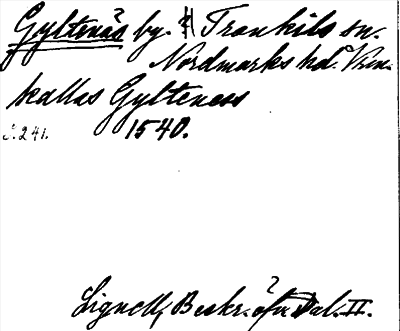 Gyltenäs by. Trankils sn.
Nordmarks hd.
kallas Gylteness
S. 241. 1540.
?
Lignell, Beskr. öfv Dal. II.